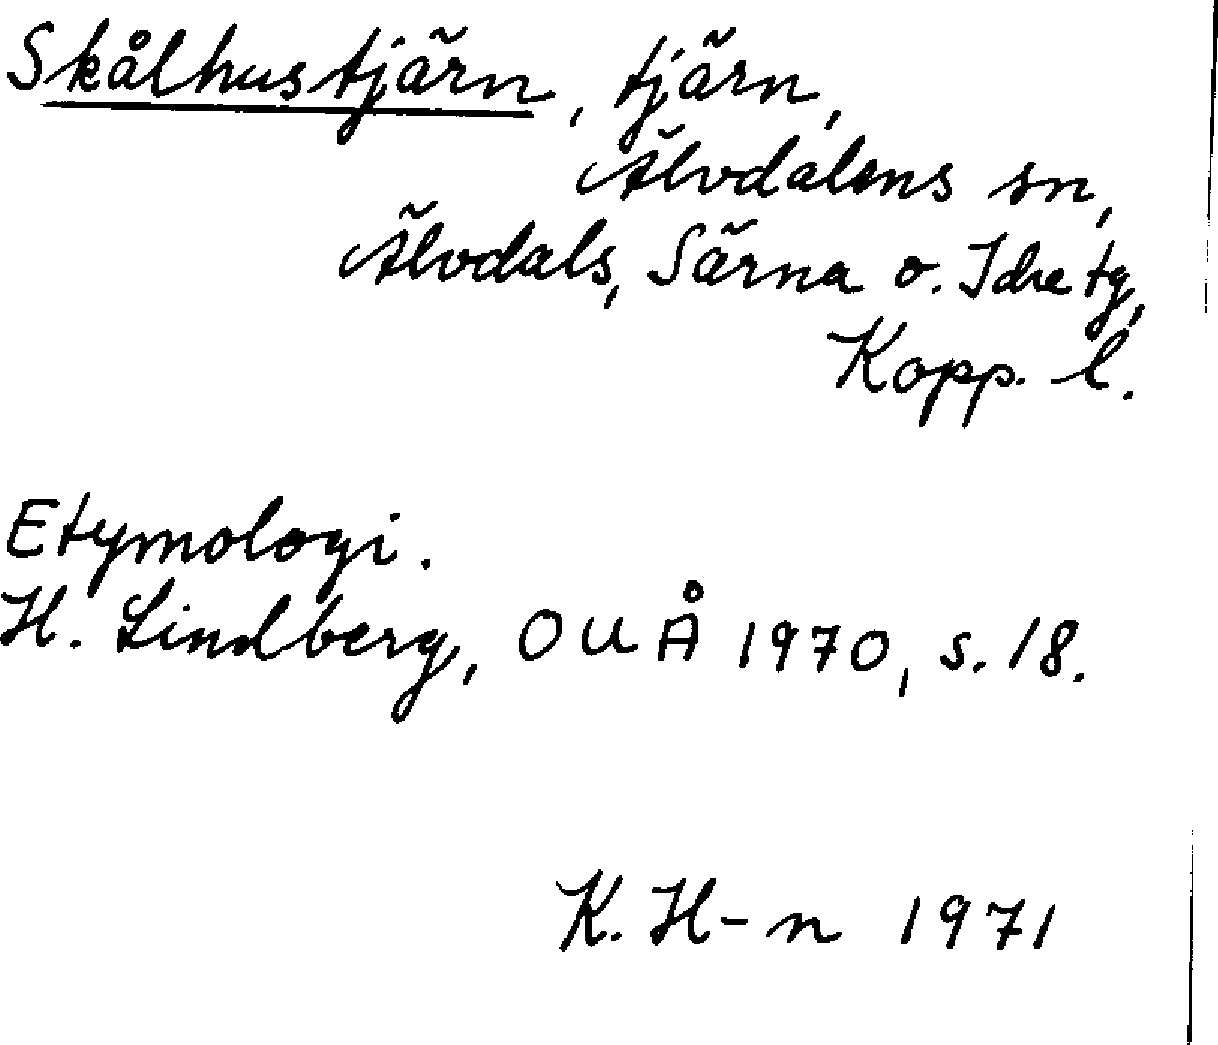 Skålhustjärn, tjärn,
Älvdalens sn,
Älvdals, Särna o. Idre tg,
Kopp. l.
Etymologi.
H. Lindberg, OUÅ 1970, s. 18.
K. H-n 1971